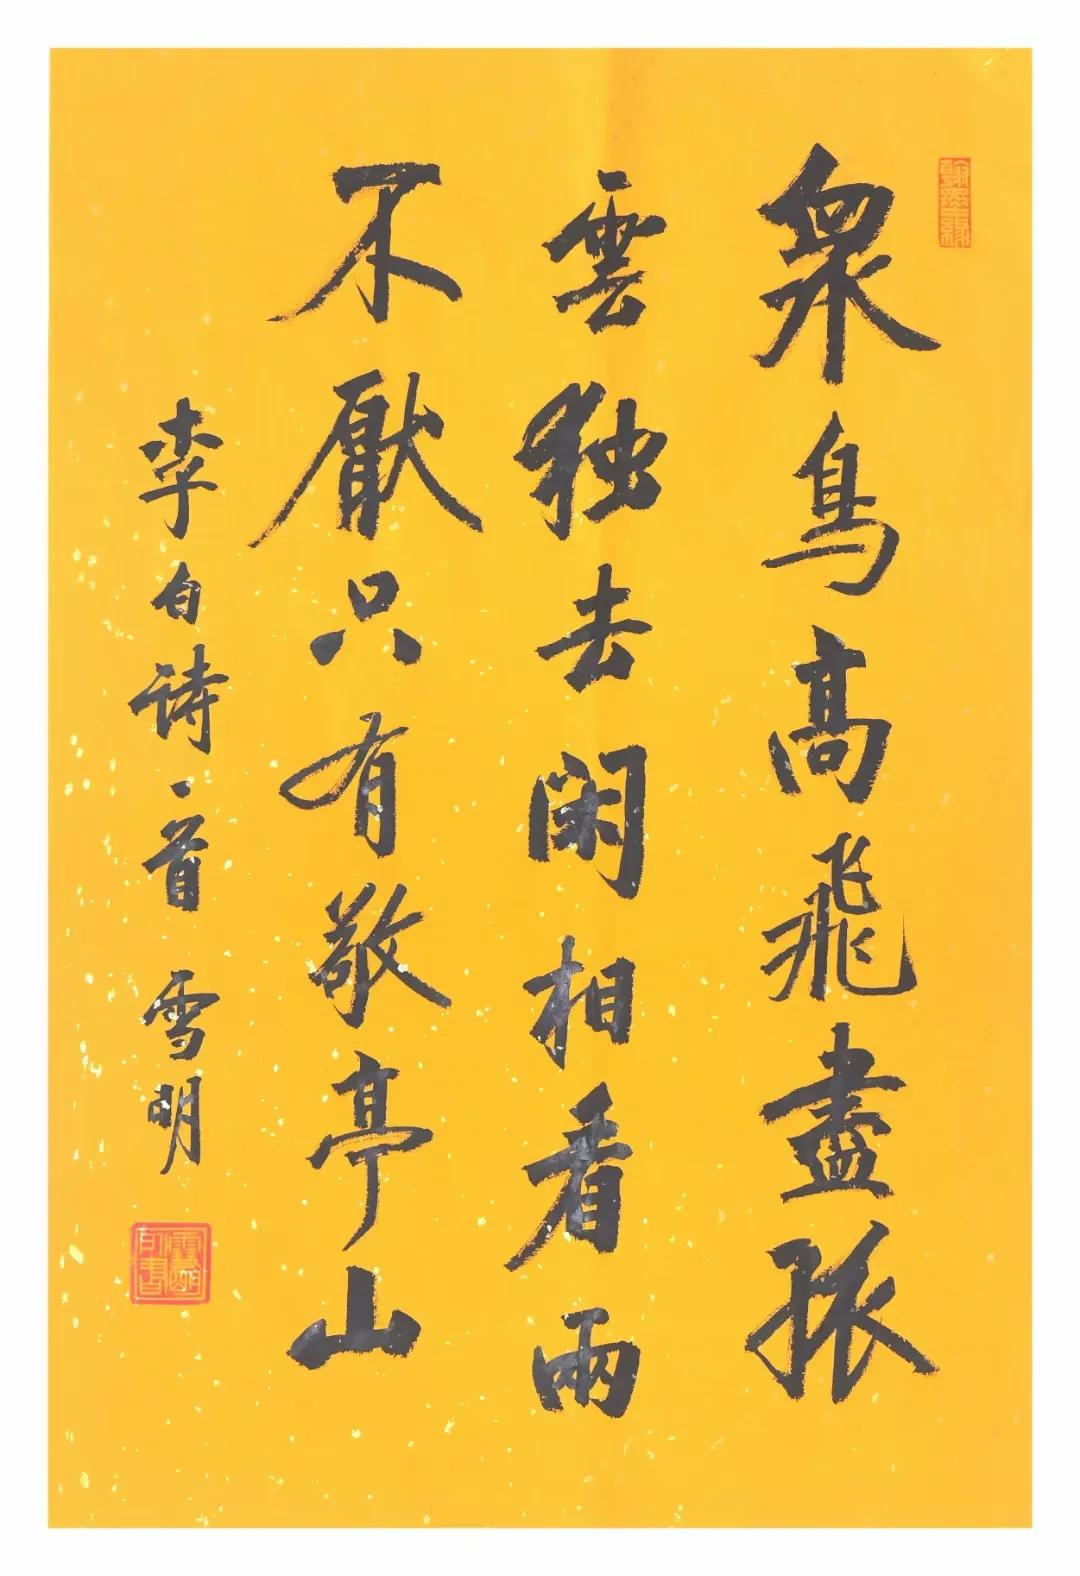 眾鳥高飛盡孤
雲独去閑相看兩
不厭只有敬亭山
李白诗一首 雪明
翰墨缘